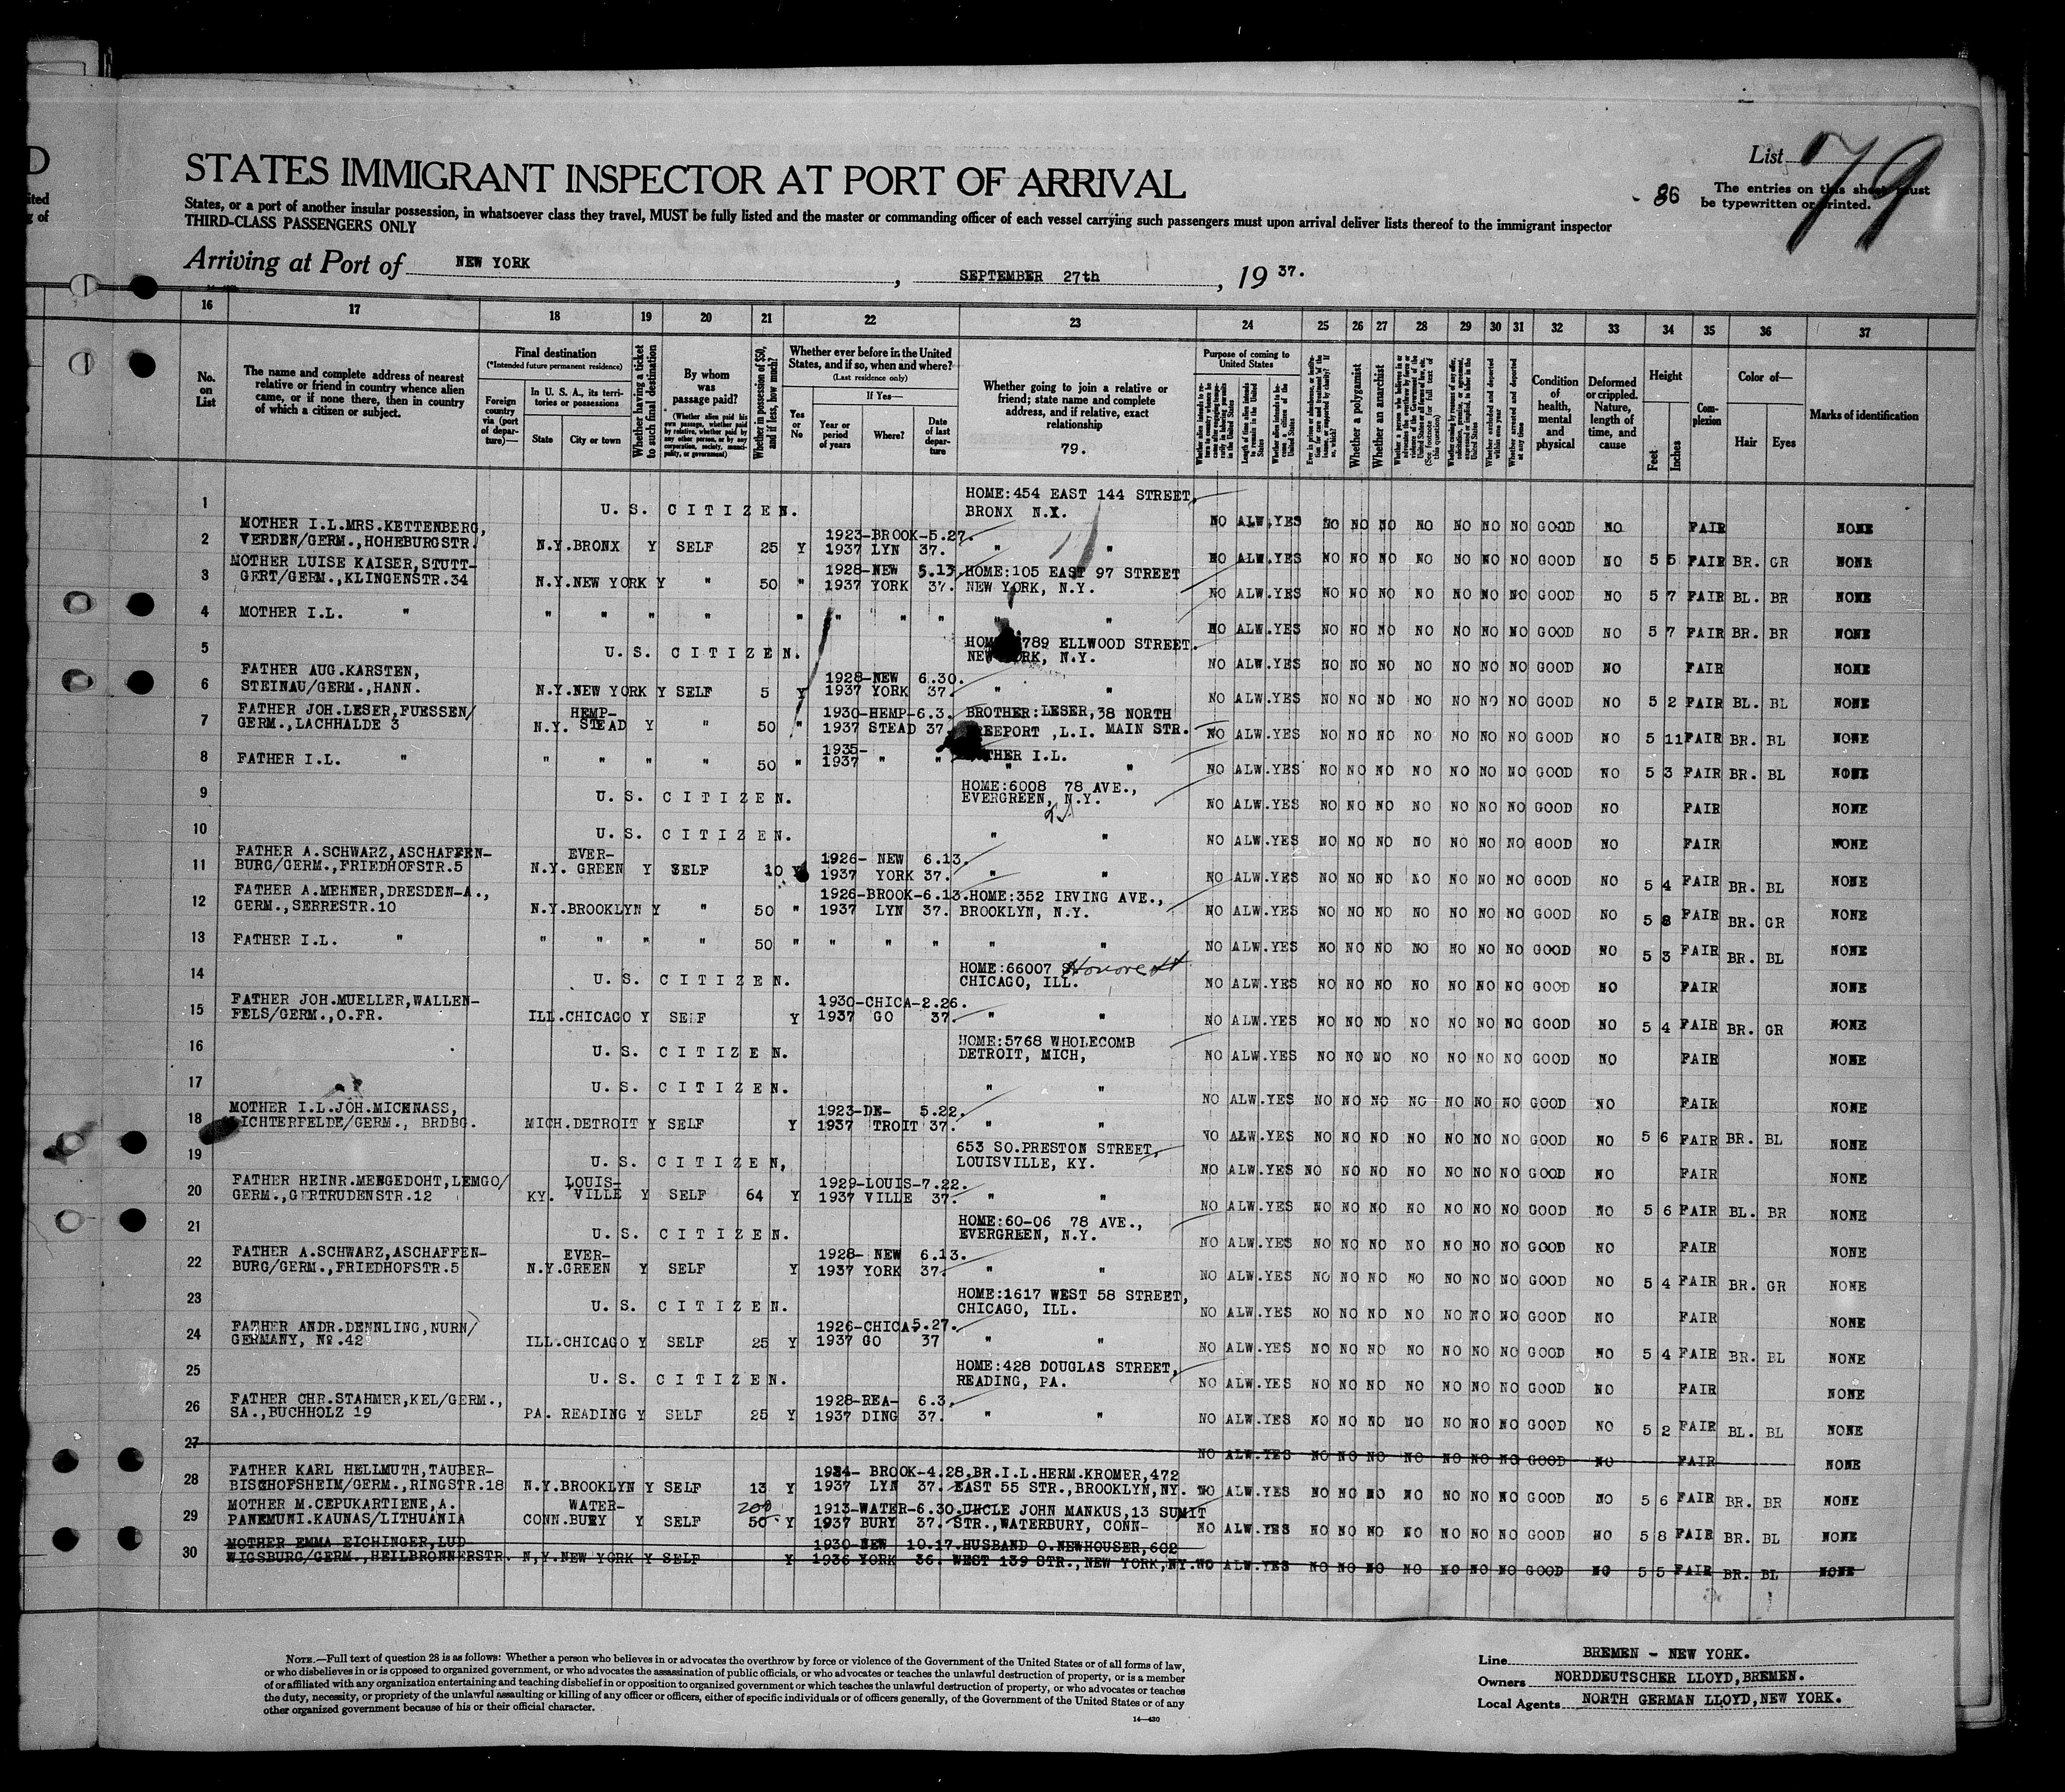 D
ited
g of
List 79
STATES IMMIGRANT INSPECTOR AT PORT OF ARRIVAL
- 86
The entries on this sheet must
be typewritten or printed.
States, or a port of another insular possession, in whatsoever class they travel, MUST be fully listed and the master or commanding officer of each vessel carrying such passengers must upon arrival deliver lists thereof to the immigrant inspector
THIRD-CLASS PASSENGERS ONLY
Arriving at Port of NEW YORK , SEPTEMBER 27th , 19 37.
16 17 18 19 20 21 22 23 24 25 26 27 28 29 30 31 32 33 34 35 36 37
No. on List
The name and complete address of nearest relative or friend in country whence alien came, or if none there, then in country of which a citizen or subject.
Final destination
(*Intended future permanent residence)
Foreign country via (port of departure)—
In U. S. A., its territories or possessions
State City or town
Whether having a ticket to such final destination
By whom was passage paid?
(Whether alien paid his own passage, whether paid by relative, whether paid by any other person, or by any corporation, society, municipality, or government)
Whether in possession of $50, and if less, how much?
Whether ever before in the United States, and if so, when and where?
(Last residence only)
Yes or No
If Yes—
Year or period of years Where? Date of last departure
Whether going to join a relative or friend; state name and complete address, and if relative, exact relationship
79.
Purpose of coming to United States
Whether a polygamist
Whether an anarchist
Whether arrested and deported at any time
Condition of health, mental and physical
Deformed or crippled. Nature, length of time, and cause
Height
Feet Inches
Complexion
Color of—
Hair Eyes
Marks of identification
1 U. S. CITIZEN. HOME:454 EAST 144 STREET, BRONX N.Y. NO ALW.YES NO NO NO NO NO NO NO GOOD NO FAIR NONE
2 MOTHER I.L.MRS.KETTENBERG, VERDEN/GERM.,HOHEBURGSTR. N.Y.BRONX Y SELF 25 Y 1923-BROOK-5.27. 1937 LYN 37. " " NO ALW.YES NO NO NO NO NO NO NO GOOD NO 5 5 FAIR BR. GR NONE
3 MOTHER LUISE KAISER,STUTT- GERT/GERM.,KLINGENSTR.34 N.Y.NEW YORK Y " 50 " 1928-NEW 5.13. 1937 YORK 37. HOME:105 EAST 97 STREET NEW YORK, N.Y. NO ALW.YES NO NO NO NO NO NO NO GOOD NO 5 7 FAIR BL. BR NONE
4 MOTHER I.L. " " " " " " " " " " NO ALW.YES NO NO NO NO NO NO NO GOOD NO 5 7 FAIR BR. BR NONE
5 U. S. CITIZEN. 789 ELLWOOD STREET. NEW YORK, N.Y. NO ALW.YES NO NO NO NO NO NO NO GOOD NO FAIR NONE
6 FATHER AUG.KARSTEN, STEINAU/GERM.,HANN. N.Y.NEW YORK Y SELF 5 Y 1928-NEW 6.30. 1937 YORK 37. " " NO ALW.YES NO NO NO NO NO NO NO GOOD NO 5 2 FAIR BL. BL NONE
7 FATHER JOH.LESER,FUESSEN/ GERM.,LACHHALDE 3 N.Y. HEMP- STEAD Y " 50 " 1930-HEMP-6.3. 1937 STEAD 37. BROTHER:LESER,38 NORTH REEPORT ,L.I. MAIN STR. NO ALW.YES NO NO NO NO NO NO NO GOOD NO 5 11 FAIR BR. BL NONE
8 FATHER I.L. " " " " " 50 " 1935- 1937 " " THER I.L. " " NO ALW.YES NO NO NO NO NO NO NO GOOD NO 5 3 FAIR BR. BL NONE
9 U. S. CITIZEN. HOME:6008 78 AVE., EVERGREEN, N.Y. NO ALW.YES NO NO NO NO NO NO NO GOOD NO FAIR NONE
10 U. S. CITIZEN. " " NO ALW.YES NO NO NO NO NO NO NO GOOD NO FAIR NONE
11 FATHER A.SCHWARZ,ASCHAFFEN- BURG/GERM.,FRIEDHOFSTR.5 N.Y. EVER- GREEN Y SELF 10 Y 1926- NEW 6.13. 1937 YORK 37. " " NO ALW.YES NO NO NO NO NO NO NO GOOD NO 5 4 FAIR BR. BL NONE
12 FATHER A.MEHNER,DRESDEN-A., GERM.,SERRESTR.10 N.Y.BROOKLYN Y " 50 " 1926-BROOK-6.13. 1937 LYN 37. HOME:352 IRVING AVE., BROOKLYN, N.Y. NO ALW.YES NO NO NO NO NO NO NO GOOD NO 5 8 FAIR BR. GR NONE
13 FATHER I.L. " " " " " 50 " " " " " " NO ALW.YES NO NO NO NO NO NO NO GOOD NO 5 3 FAIR BR. BL NONE
14 U. S. CITIZEN. HOME:66007 S Honore St CHICAGO, ILL. NO ALW.YES NO NO NO NO NO NO NO GOOD NO FAIR NONE
15 FATHER JOH.MUELLER,WALLEN- FELS/GERM.,O.FR. ILL.CHICAGO Y SELF Y 1930-CHICA-2.26. 1937 GO 37. " " NO ALW.YES NO NO NO NO NO NO NO GOOD NO 5 4 FAIR BR. GR NONE
16 U. S. CITIZEN. HOME:5768 WHOLECOMB DETROIT, MICH, NO ALW.YES NO NO NO NO NO NO NO GOOD NO FAIR NONE
17 U. S. CITIZEN. " " NO ALW.YES NO NO NO NO NO NO NO GOOD NO FAIR NONE
18 MOTHER I.L.JOH.MICKNASS, LICHTERFELDE/GERM., BRDBG. MICH.DETROIT Y SELF Y 1923-DE- 5.22. 1937 TROIT 37. " " NO ALW.YES NO NO NO NO NO NO NO GOOD NO 5 6 FAIR BR. BL NONE
19 U. S. CITIZEN, 653 SO.PRESTON STREET, LOUISVILLE, KY. NO ALW.YES NO NO NO NO NO NO NO GOOD NO FAIR NONE
20 FATHER HEINR.MENGEDOHT,LEMGO/ GERM.,GERTRUDENSTR.12 KY. LOUIS- VILLE Y SELF 64 Y 1929-LOUIS-7.22. 1937 VILLE 37. " " NO ALW.YES NO NO NO NO NO NO NO GOOD NO 5 6 FAIR BL. BR NONE
21 U. S. CITIZEN. HOME:60-06 78 AVE., EVERGREEN, N.Y. NO ALW.YES NO NO NO NO NO NO NO GOOD NO FAIR NONE
22 FATHER A.SCHWARZ,ASCHAFFEN- BURG/GERM.,FRIEDHOFSTR.5 N.Y. EVER- GREEN Y SELF Y 1928- NEW 6.13. 1937 YORK 37. " " NO ALW.YES NO NO NO NO NO NO NO GOOD NO 5 4 FAIR BR. GR NONE
23 U. S. CITIZEN. HOME:1617 WEST 58 STREET, CHICAGO, ILL. NO ALW.YES NO NO NO NO NO NO NO GOOD NO FAIR NONE
24 FATHER ANDR.DENNLING,NURN/ GERMANY, No.42 ILL.CHICAGO Y SELF 25 Y 1926-CHICA5.27. 1937 GO 37 " " NO ALW.YES NO NO NO NO NO NO NO GOOD NO 5 4 FAIR BR. BL NONE
25 U. S. CITIZEN. HOME:428 DOUGLAS STREET, READING, PA. NO ALW.YES NO NO NO NO NO NO NO GOOD NO FAIR NONE
26 FATHER CHR.STAHMER,KEL/GERM., SA.,BUCHHOLZ 19 PA. READING Y SELF 25 Y 1928-REA- 6.3. 1937 DING 37. " " NO ALW.YES NO NO NO NO NO NO NO GOOD NO 5 2 FAIR BL. BL NONE
27 NO ALW.YES NO NO NO NO NO NO NO GOOD NO FAIR NONE
28 FATHER KARL HELLMUTH,TAUBER- BISCHOFSHEIM/GERM.,RINGSTR.18 N.Y.BROOKLYN Y SELF 13 Y 1934- BROOK-4.28. 1937 LYN 37. BR.I.L.HERM.KROMER,472 EAST 55 STR.,BROOKLYN,NY. NO ALW.YES NO NO NO NO NO NO NO GOOD NO 5 6 FAIR BR. BR NONE
29 MOTHER M.CEPUKARTIENE,A. PANEMUNI.KAUNAS/LITHUANIA CONN. WATER- BURY Y SELF 200 50 Y 1913-WATER-6.30. 1937 BURY 37. UNCLE JOHN MANKUS,13 SUMIT STR.,WATERBURY, CONN- NO ALW.YES NO NO NO NO NO NO NO GOOD NO 5 8 FAIR BR. BL NONE
30 MOTHER EMMA EICHINGER,LUD WIGSBURG/GERM.,HEILBRONNERSTR. N.Y.NEW YORK Y SELF Y 1930-NEW 10.17. 1936 YORK 36. HUSBAND O.NEWHOUSER,602 WEST 139 STR.,NEW YORK,NY. NO ALW.YES NO NO NO NO NO NO NO GOOD NO 5 5 FAIR BR. BL NONE
NOTE.—Full text of question 28 is as follows: Whether a person who believes in or advocates the overthrow by force or violence of the Government of the United States or of all forms of law,
or who disbelieves in or is opposed to organized government, or who advocates the assassination of public officials, or who advocates or teaches the unlawful destruction of property, or is a member
of or affiliated with any organization entertaining and teaching disbelief in or opposition to organized government or which teaches the unlawful destruction of property, or who advocates or teaches
the duty, necessity, or propriety of the unlawful assaulting or killing of any officer or officers, either of specific individuals or of officers generally, of the Government of the United States or of any
other organized government because of his or their official character.
14—430
Line BREMEN - NEW YORK.
Owners NORDDEUTSCHER LLOYD,BREMEN.
Local Agents NORTH GERMAN LLOYD,NEW YORK.